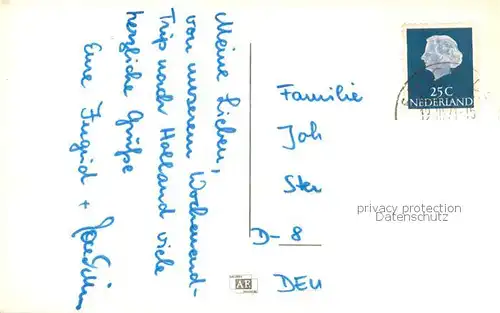 Meine Lieben,
von unserem Wochenend-
Trip nach Holland viele
herzliche Grüße
Eure Ingrid +
Familie
Joh
Ster
D- 8
DEU
25C
NEDERLAND
privacy protection
Datenschutz